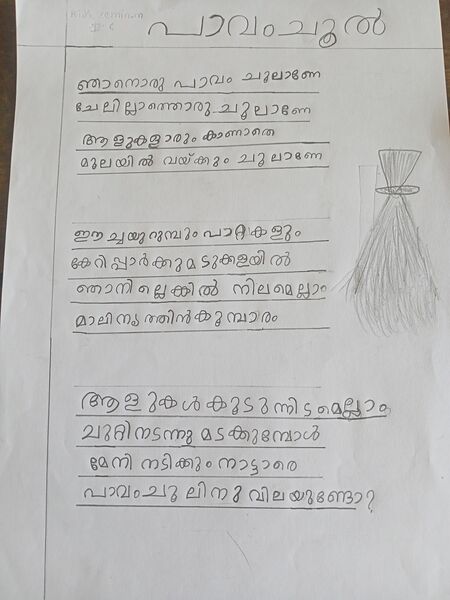 പാവം ചൂൽ
ഞാനൊരു പാവം ചൂലാണേ
ചേലില്ലാത്തൊരു ചൂലാണേ
ആളുകളാരും കാണാതെ
മൂലയിൽ വയ്ക്കും ചൂലാണേ
ഈച്ചയുറുമ്പും പാറ്റകളും
കേറിപ്പാർക്കുമടുക്കളയിൽ
ഞാനില്ലെങ്കിൽ നിലമെല്ലാം
മാലിന്യത്തിൻകൂമ്പാരം
ആളുകൾകൂടുന്നിടമെല്ലാം
ചുറ്റിനടന്നുമടക്കുമ്പോൾ
മേനി നടിക്കും നാട്ടാരെ
പാവംചൂലിനു വിലയുണ്ടോ?